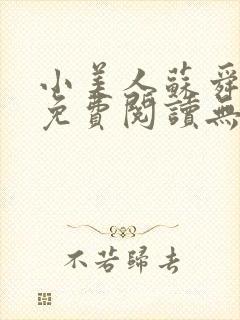 小美人蘇舜
免費閱讀無
不若歸去